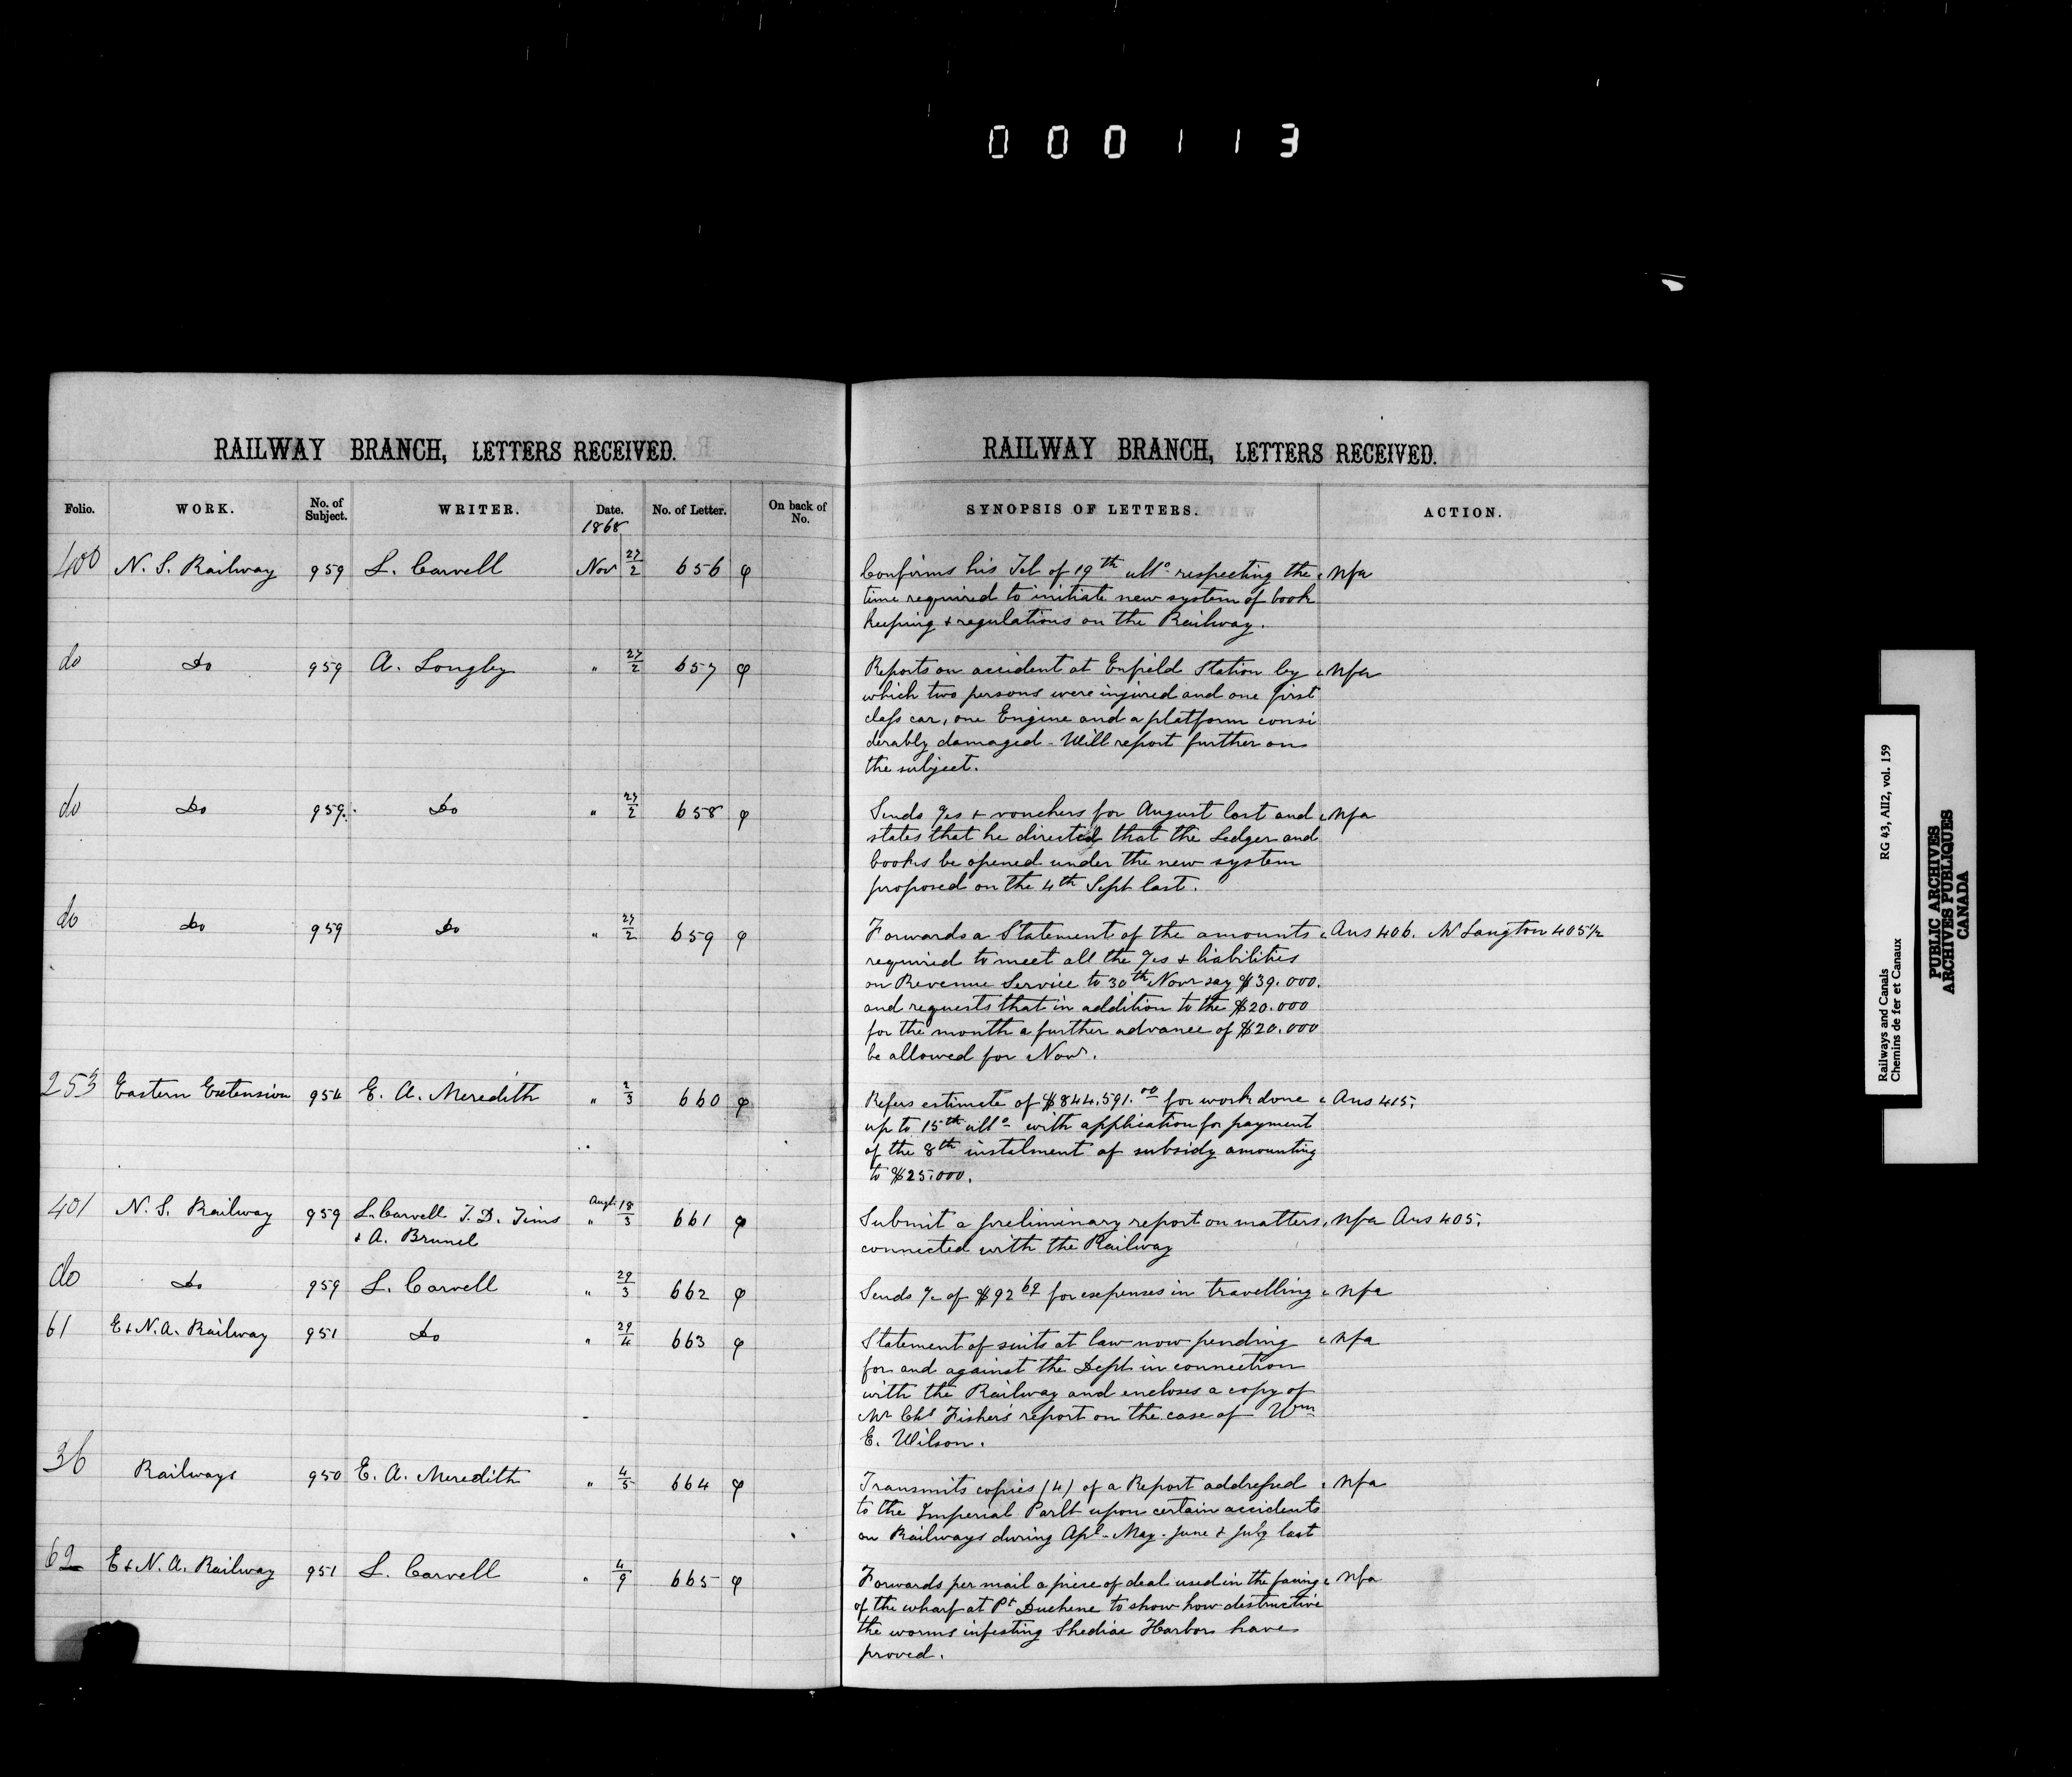 000113
RAILWAY BRANCH, LETTERS RECEIVED.
Folio. WORK. No. of Subject. WRITER. Date. No. of Letter. On back of No.
1868
400 N. S. Railway 959 L. Carvell Nov 27/2 656 φ
do Do 959 A. Longley " 27/2 657 φ
do Do 959. Do " 27/2 658 φ
do Do 959 Do " 27/2 659 φ
253 Eastern Extension 954 E. A. Meredith " 2/3 660 φ
401 N. S. Railway 959 L. Carvell T. D. Tims " Augt. 18/3 661 φ
& A. Brunel
do Do 959 L. Carvell " 29/3 662 φ
61 E & N. A. Railway 951 Do " 29/4 663 φ
36 Railways 950 E. A. Meredith " 4/5 664 φ
62 E & N. A. Railway 951 L. Carvell " 4/9 665 φ
RAILWAY BRANCH, LETTERS RECEIVED.
SYNOPSIS OF LETTERS. ACTION.
Confirms his Tel of 19th ullo respecting the nfa
time required to initiate new system of book
keeping & regulations on the Railway.
Reports on accident at Enfield Station by nfa
which two persons were injured and one first
class car, one Engine and a platform consi
derably damaged - Will report further on
the subject.
Sends a/cs & vouchers for August last and nfa
states that he directed that the Ledger and
books be opened under the new system
proposed on the 4th Sept last.
Forwards a Statement of the amounts Ans 406. Mr Langton 405½
required to meet all the a/cs & liabilities
on Revenue Service to 30th Novr say $39.000.
and requests that in addition to the $20.000
for the month a further advance of $20.000
be allowed for Novr.
Refers estimate of $844.591.00 for work done Ans 415.
up to 15th ullo with application for payment
of the 8th instalment of subsidy amounting
to $25.000.
Submit a preliminary report on matters nfa Ans 405.
connected with the Railway
Sends a/c of $92 69 for expenses in travelling nfa
Statement of suits at law now pending nfa
for and against the Dept in connection
with the Railway and encloses a copy of
Mr Chs Fisher's report on the case of Wm
E. Wilson.
Transmits copies (4) of a Report addressed nfa
to the Imperial Parlt upon certain accidents
on Railways during Apl - May - June & July last
Forwards per mail a piece of deal used in the facing nfa
of the wharf at Pt Duchene to show how destructive
the worms infesting Shediac Harbor have
proved.
Railways and Canals RG 43, AII2, vol. 159
Chemins de fer et Canaux
PUBLIC ARCHIVES
ARCHIVES PUBLIQUES
CANADA